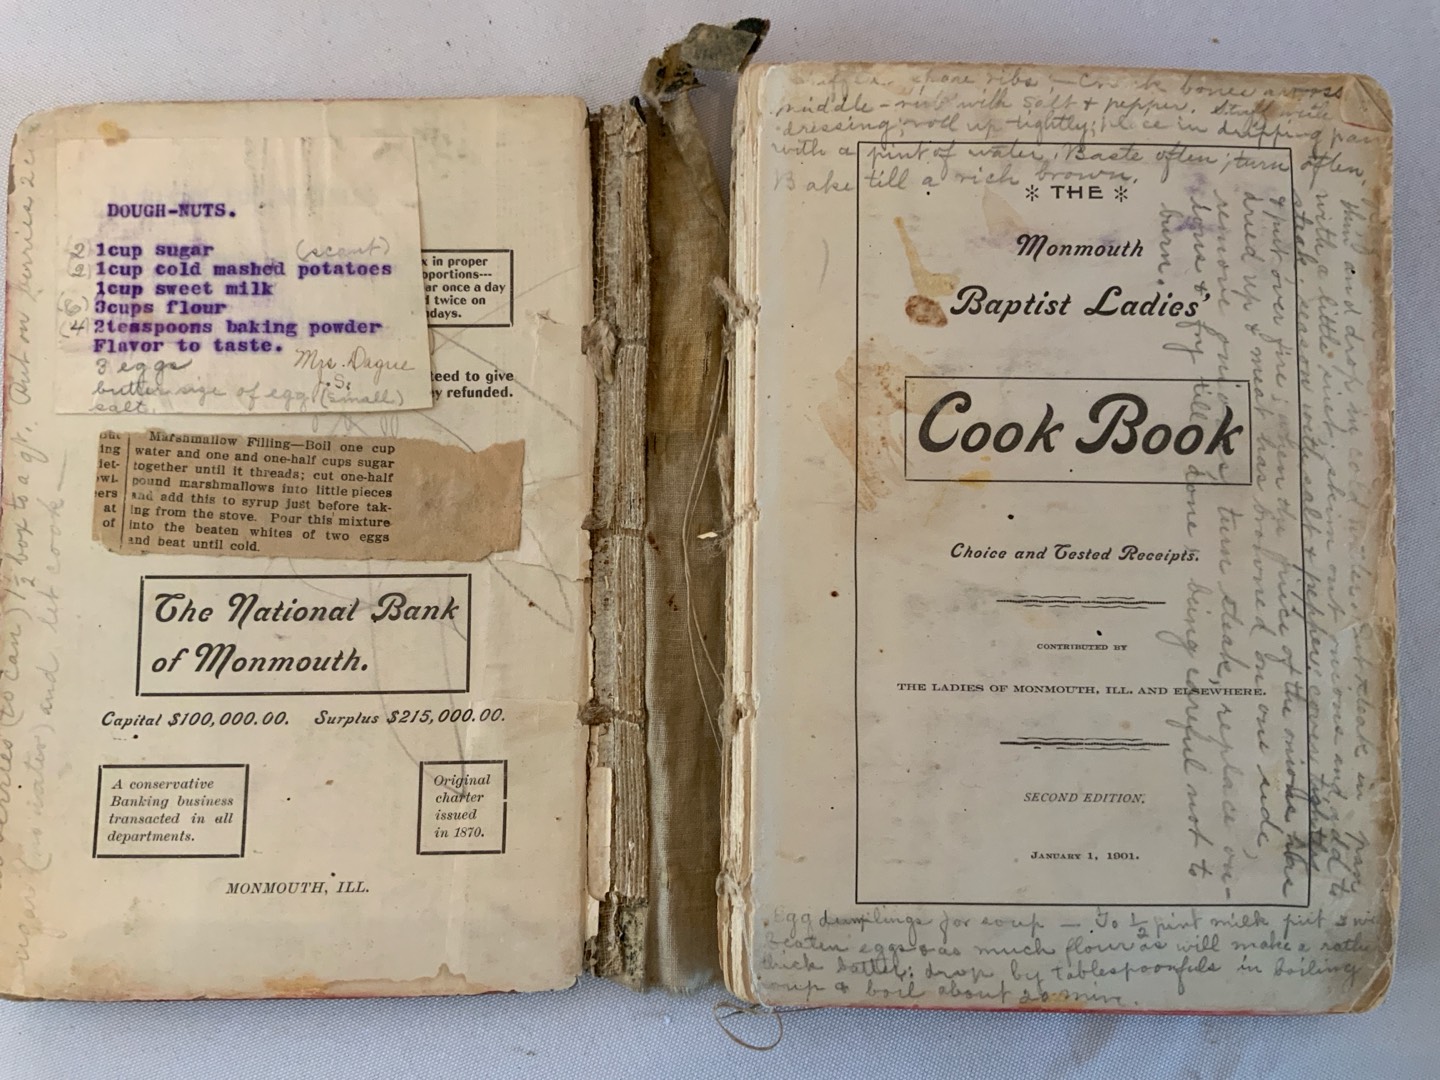 DOUGH-NUTS.
(2) 1cup sugar (scant)
(2) 1cup cold mashed potatoes
1cup sweet milk
(6) 3cups flour
(4) 2teaspoons baking powder
Flavor to taste.
3 eggs Mrs. Dague
butter size of egg (small)
salt.
x in proper
portions---
ar once a day
d twice on
days.
teed to give
ey refunded.
Marshmallow Filling—Boil one cup
water and one and one-half cups sugar
together until it threads; cut one-half
pound marshmallows into little pieces
and add this to syrup just before tak-
ing from the stove. Pour this mixture
into the beaten whites of two eggs
and beat until cold.
out
ing
let-
owl-
ers
at
of
The National Bank
of Monmouth.
Capital $100,000.00. Surplus $215,000.00.
A conservative
Banking business
transacted in all
departments.
Original
charter
issued
in 1870.
MONMOUTH, ILL.
Put on berries
berries (to can) 1½ box to a qt.
sugar (no water) and let cook —
spare ribs; — Crack bones across
middle - rub with salt & pepper. Stuff with
dressing; roll up tightly; place in dripping pan
with a pint of water. Baste often; turn often.
Bake till a rich brown.
* THE *
Monmouth
Baptist Ladies'
Cook Book
Choice and Tested Receipts.
CONTRIBUTED BY
THE LADIES OF MONMOUTH, ILL. AND ELSEWHERE.
SECOND EDITION.
JANUARY 1, 1901.
thin and drop in cold water. Put steak in pan
with a little; skim out onions and add to
steak, season with salt & pepper, cover tightly
& put over fire; when the juice of the onions has
dried up & meat has browned on one side,
remove onions, turn steak, replace on-
ions & fry till done being careful not to
burn.
Egg dumplings for soup — To ½ pint milk put 2 well
beaten eggs & as much flour as will make a rather
thick batter; drop by tablespoonfuls in boiling
soup & boil about 20 min.